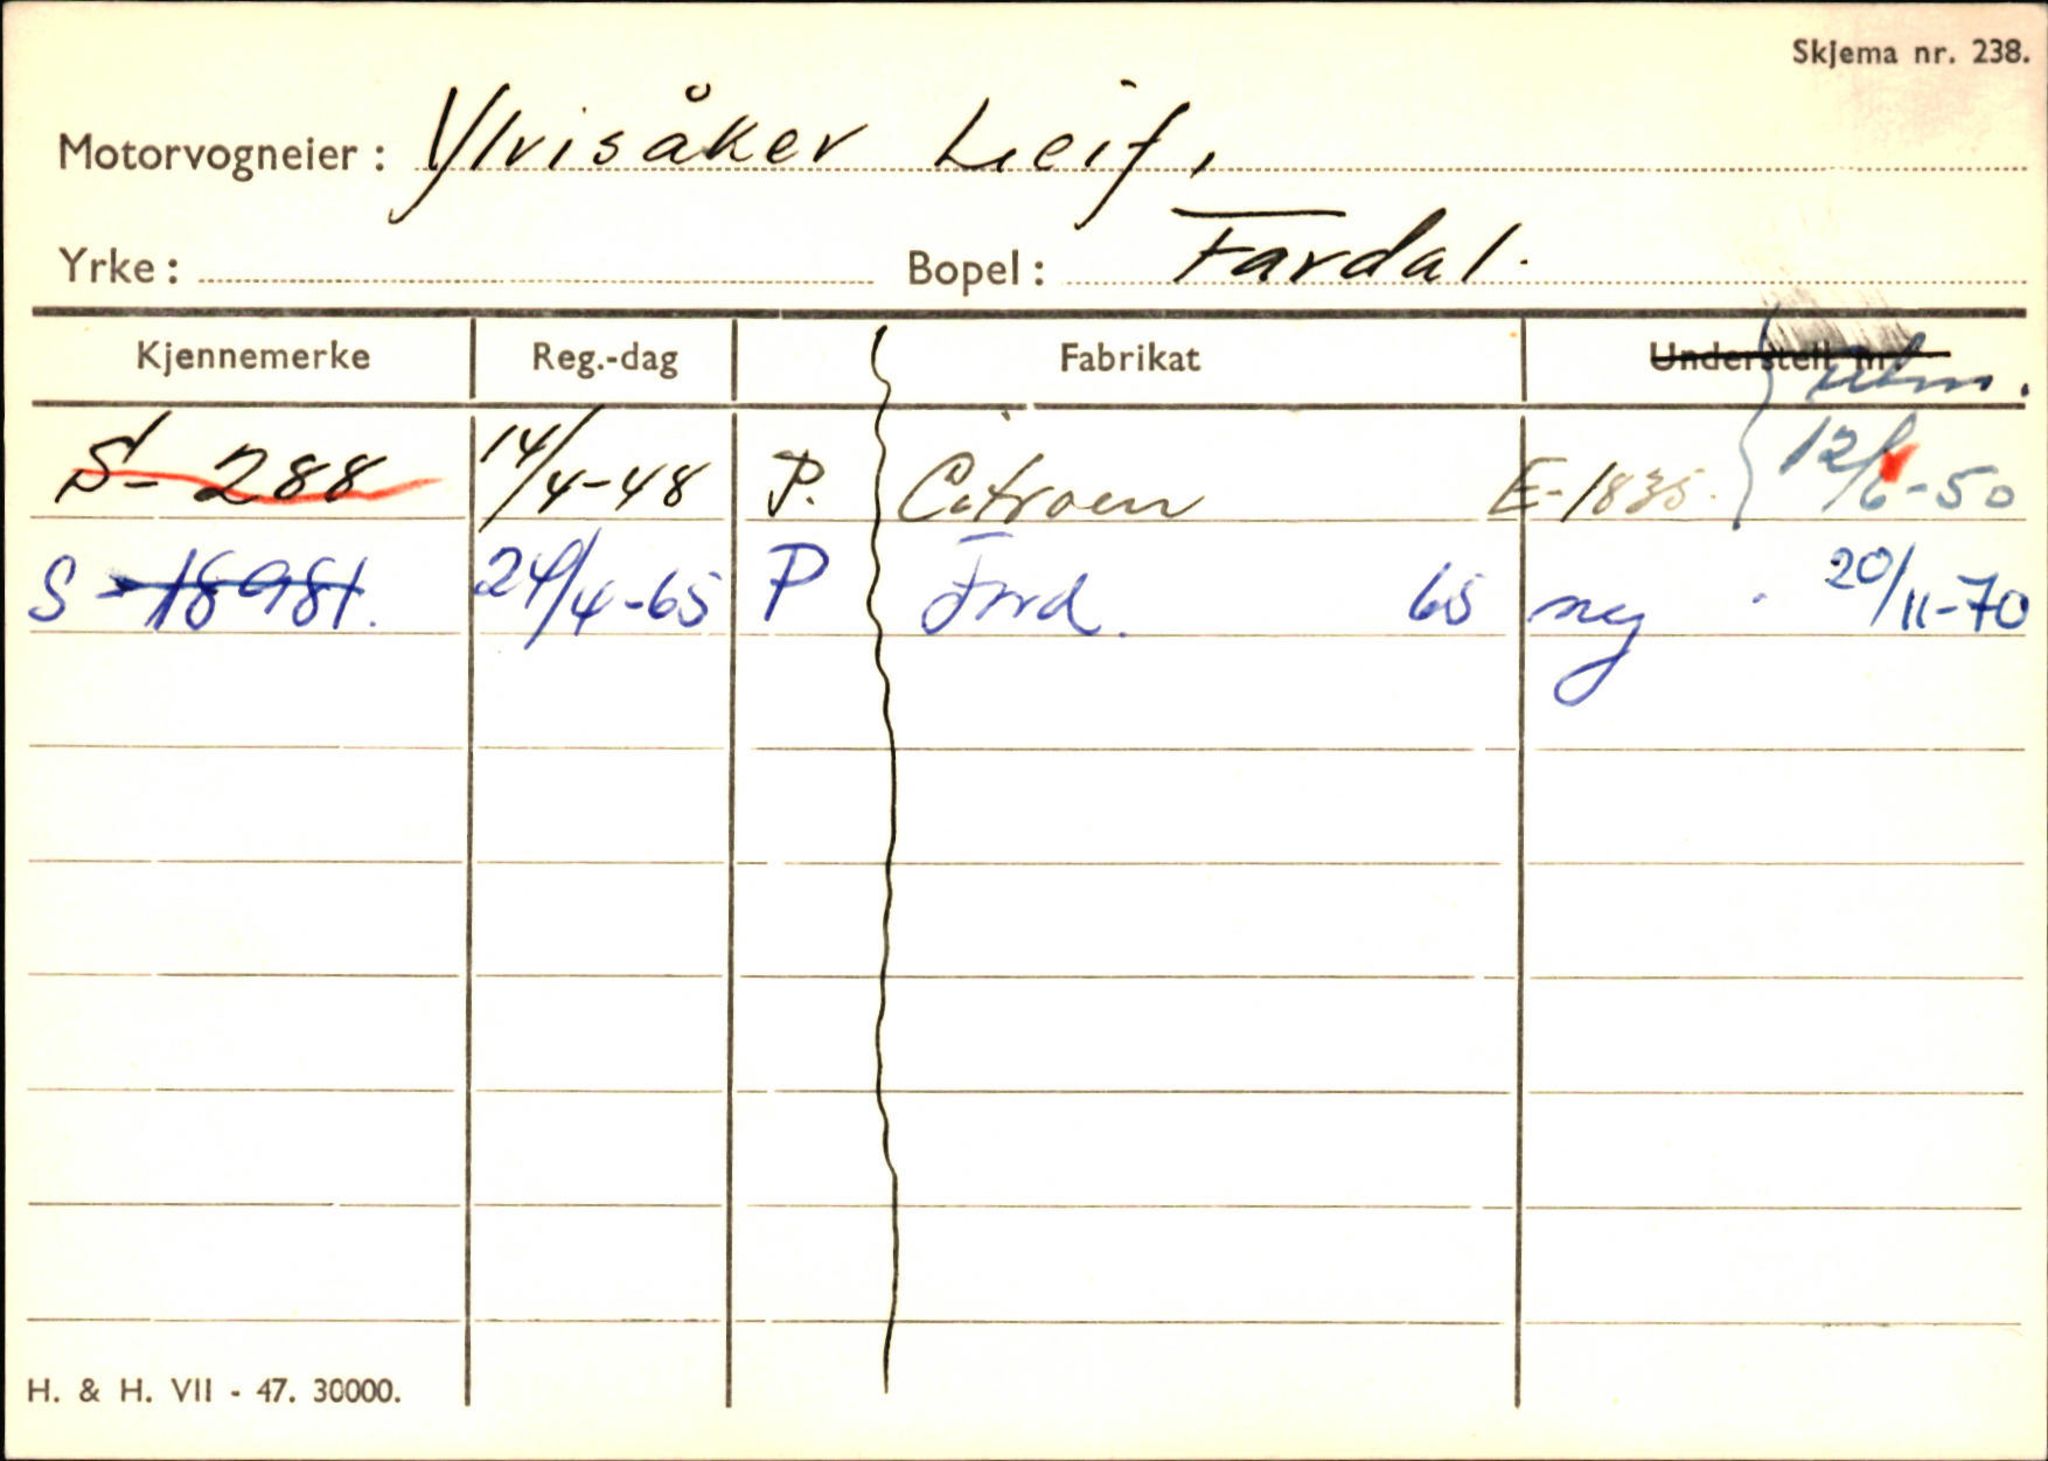 Skjema nr. 238.
Motorvogneier: Ylvisåker Leif,
Yrke: Bopel: Fardal.
Kjennemerke Reg.-dag Fabrikat Understell nr.
S-288 14/4-48 P. Citroen E-1835. 12/6-50
S-18981. 24/4-65 P Ford. 65 ny 20/11-70
H. & H. VII - 47. 30000.